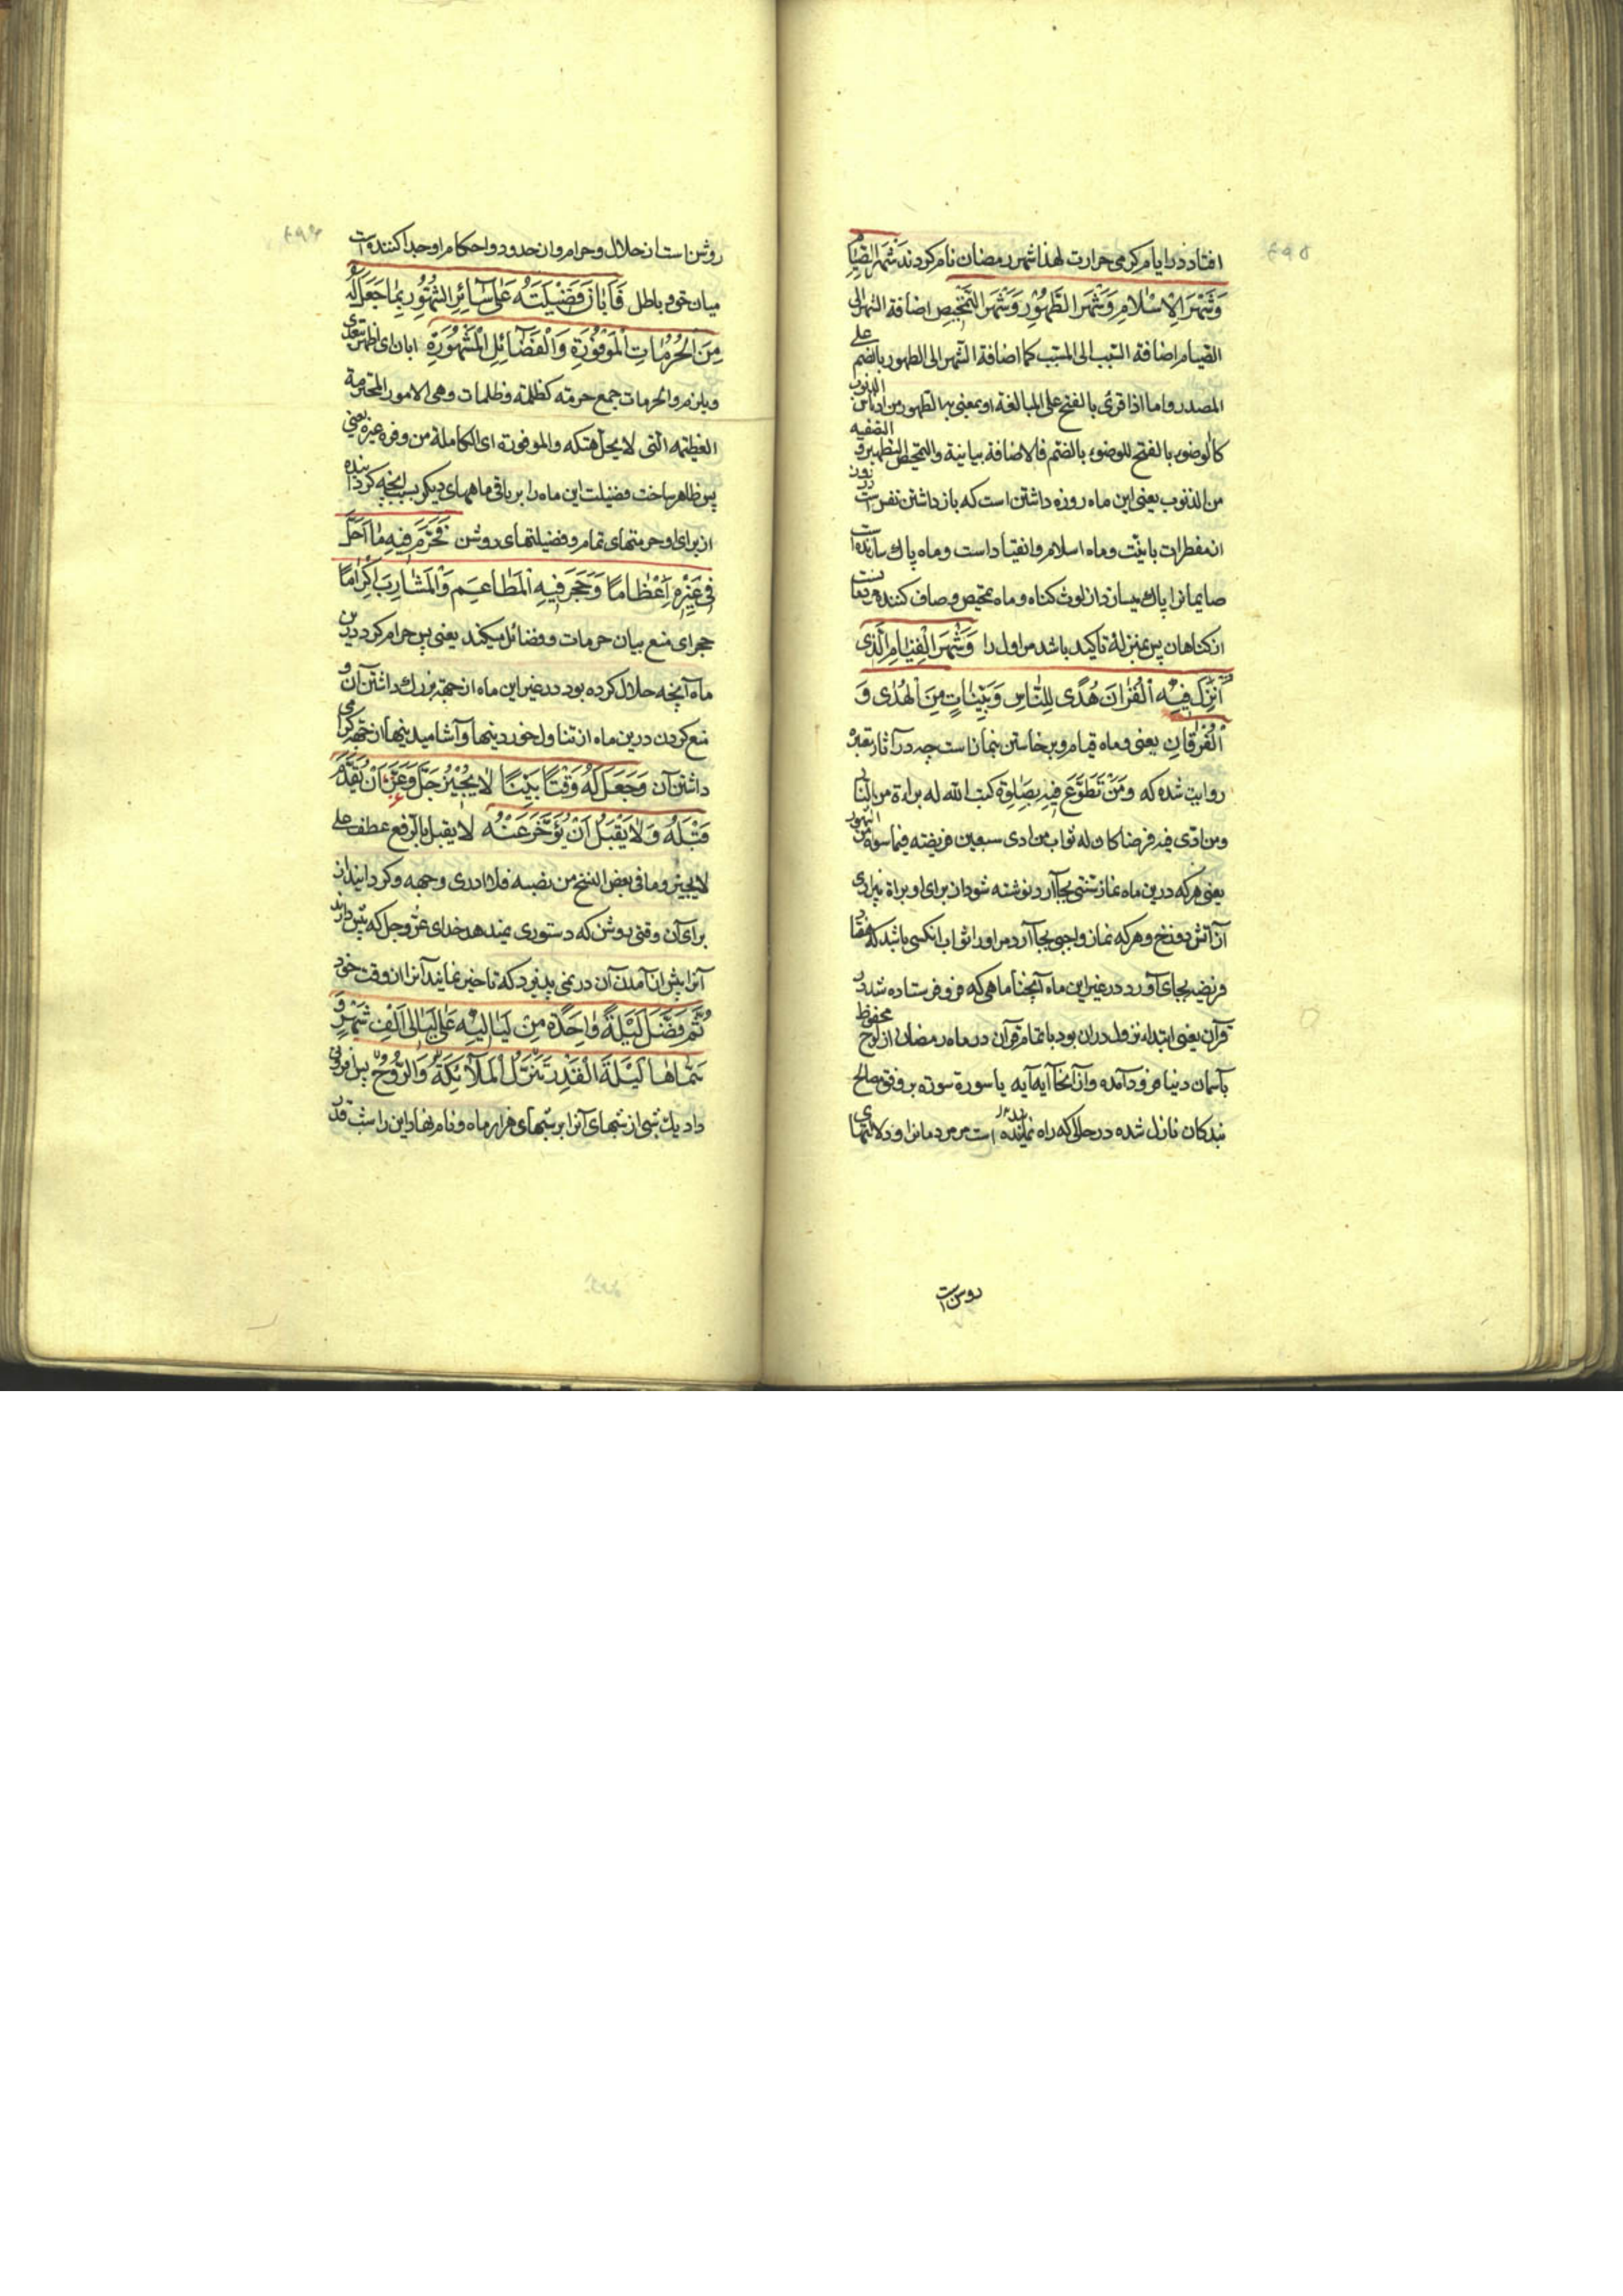 افتاد در ایام کرمی حرارت لهذا شهر رمضان نام کردند شَهْرَ الصِّیَامِ
وَشَهْرَ الْاِسْلَامِ وَشَهْرَ الطَّهُوْرِ وَشَهْرَ التَّمْحِیْصِ اضافة الشهر الی
الصیام اضافة السبب الی المسبب کما اضافة الشهر الی الطهور بالضم علی
المصدر واما اذا قرئ بالفتح علی المبالغة او بمعنی یطهور من ادناس الذنوب
کالوضوء بالفتح للوضوء بالضم فالاضافة بیانیة والتمحیص التطهیر و التصفیه
من الذنوب یعنی این ماه روزه داشتن است که باز داشتن نفس است
از مفطرات با نیت وماه اسلام وانقیاد است وماه پاك سازنده است
صایمانرا پاك میسازد از لوث کناه وماه تمحیص وصاف کننده
از کناهان پس بمنزلهٔ تاکید باشد مر اول را وَشَهْرَ الْقِیَامِ الَّذِی
اُنْزِلَ فِیْهِ الْقُرْاٰنَ هُدًی لِلنَّاسِ وَبَیِّنَاتٍ مِنَ الْهُدٰی وَ
الْفُرْقَانِ یعنی وماه قیام وبرخاستن بنمازاست چه در آثار معتبره
روایت شده که وَمَنْ تَطَوَّعَ فِیْهِ بِصَلٰوةٍ کتب الله له براءة من النار
ومن ادی فیه فرضا کان له ثواب من ادی سبعین فریضة فیما سواه من الشهور
یعنی هرکه درین ماه نماز سنتی بجا آرد نوشته شود از برای او براة بیزاری
از آتش دوزخ وهرکه نماز واجبی بجا آرد مر اورا ثواب انکسی باشد که هفتاد
فریضه بجای آورد در غیر این ماه آنچنان ماهی که فرو فرستاده شد در
قرآن یعنی ابتداء نزول دران بود با تمام قرآن در ماه رمضان از لوح محفوظ
بآسمان دنیا فرود آمده واز آنجا آیه آیه یا سورة سوره بر وفق مصالح
بندکان نازل شده در حالی که راه نماینده است مر مردمانرا ودلالتهای
روشن است
روشن است از حلال وحرام واز حدود واحکام او جدا کننده است
میان حق و باطل فَاَبَانَ فَضِیْلَتَهُ عَلٰی سَائِرِ الشُّهُوْرِ بِمَا جَعَلَ لَهُ
مِنَ الْحُرُمَاتِ الْمَوْفُوْرَةِ وَالْفَضَائِلِ الْمَشْهُوْرَةِ ابان ای اظهر یتعدی
ویلزم والحرمات جمع حرمته کظلمة وظلمات وهی الامور المحترمة
العظیمه التی لا یحل هتکه والموفورة ای الکاملة من وفره غیره یعنی
پس ظاهر ساخت فضیلت این ماه را بر باقی ماههای دیکر بسبب انچه کردانیده
از برای او حرمتهای تمام وفضیلتهای روشن فَحَرَّمَ فِیهِ مَا اَحَلَّ
فِی غَیْرِهِ اِعْظَامًا وَحَجَرَ فِیهِ الْمَطَاعِمَ وَالْمَشَارِبَ اِکْرَامًا
حجر ای منع بیان حرمات وفضائل میکند یعنی پس حرام کرد درین
ماه آنچه حلال کرده بود در غیر این ماه از جهة بزرك داشتن آن و
منع کردن درین ماه از تناول خوردنیها وآشامیدنیها از جهة کرامی
داشتن آن وَجَعَلَ لَهُ وَقْتًا بَیِّنًا لَا یُجِیْزُ جَلَّ وَعَزَّ اَنْ یُقَدَّمَ
قَبْلَهُ وَلَا یَقْبَلُ اَنْ یُؤَخَّرَ عَنْهُ لا یقبل بالرفع عطف علی
لا یجیز وما فی بعض النسخ من نصبه فلا ادری وجهه وکردانید از
برای آن وقتی روشن که دستوری نمیدهد خدای عز وجل که پیش دارند
آنرا پیش از آمدن آن در نمی پذیرد که تاخیر نمایند آنرا از وقت خود
ثُمَّ فَضَّلَ لَیْلَةً وَاحِدَةً مِنْ لَیَالِیْهِ عَلٰی لَیَالِی اَلْفِ شَهْرٍ وَ
سَمَّاهَا لَیْلَةَ الْقَدْرِ تَنَزَّلُ الْمَلَآئِکَةُ وَالرُّوْحُ پس افزونی
داد یك شبی از شبهای آنرا بر شبهای هزار ماه ونام نهاد این را شب قدر